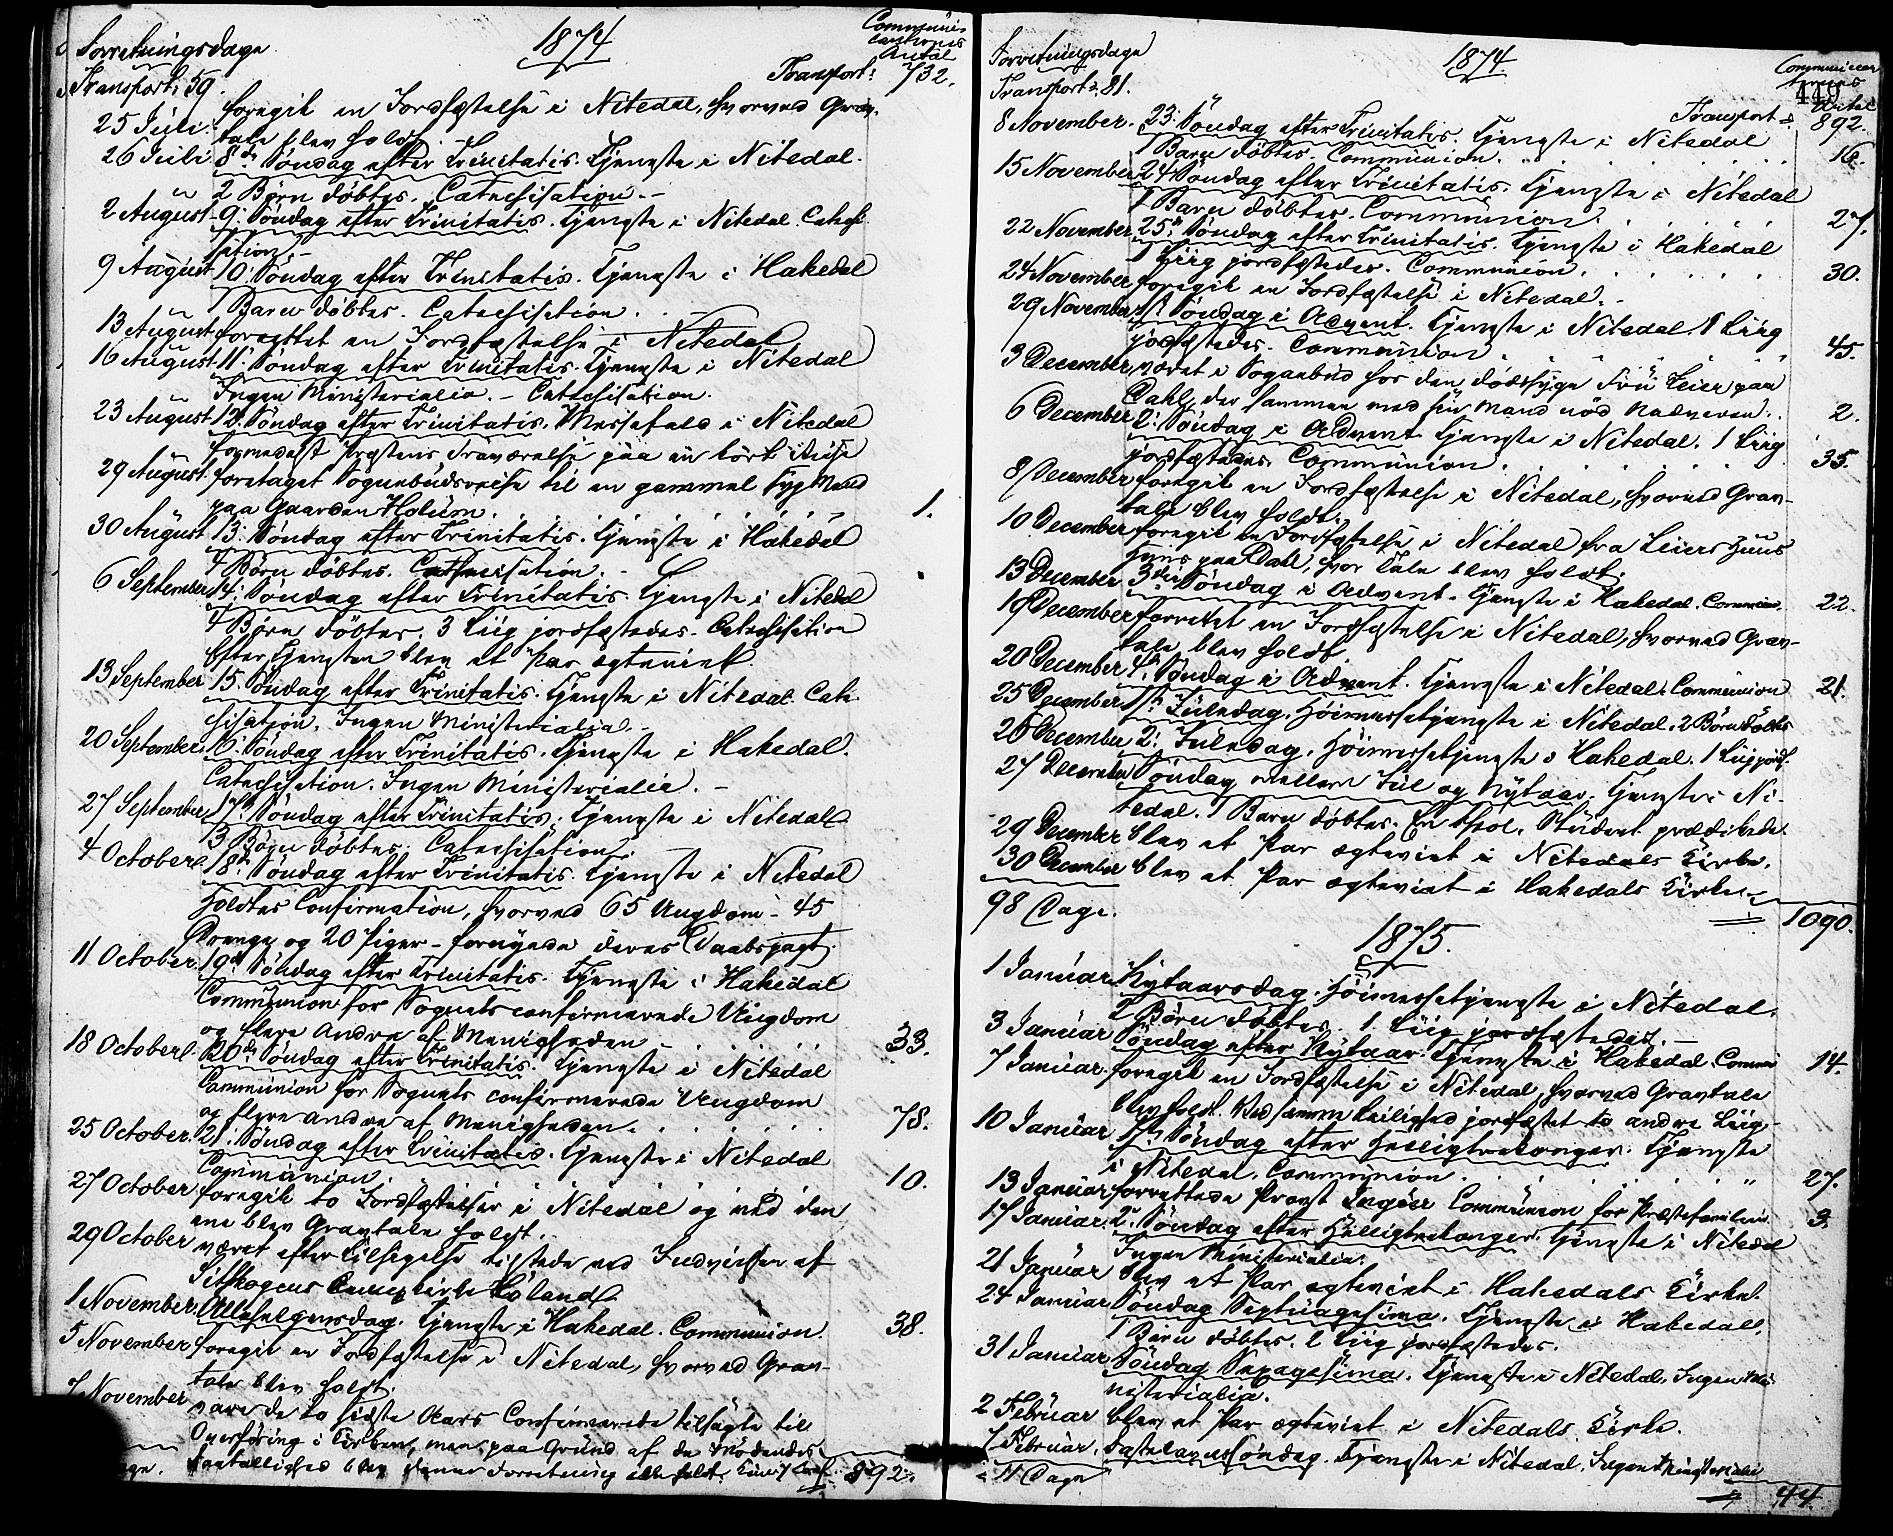 Forretningsdage
1874
Communi-
canternes
Antal
Transport: 59.
Transport: 732.
25 Juli. foregik en Jordfæstelse i Nitedal, hvorved Grav-
tale blev holdt.
26 Juli 8de Søndag efter Trinitatis. Tjeneste i Nitedal.
2 Børn døbtes. Catechisation. -
2 August 9. Søndag efter Trinitatis. Tjeneste i Nitedal. Catechi-
sation. -
9 August 10. Søndag efter Trinitatis. Tjeneste i Hakedal
1 Barn døbtes. Catechisation.
13 August forrettet en Jordfæstelse i Nitedal
16 August 11. Søndag efter Trinitatis. Tjeneste i Nitedal
Ingen Ministerialia. - Catechisation.
23 August 12. Søndag efter Trinitatis. Messefald i Nitedal
formedelst Præstens Fraværelse paa en kort Reise
29 August foretaget Sognebudsreise til en gammel syg Mand
paa Gaarden Holum. 1.
30 August 13. Søndag efter Trinitatis. Tjeneste i Hakedal
4 Børn døbtes. Catechisation. -
6 September 14. Søndag efter Trinitatis. Tjeneste i Nitedal
4 Børn døbtes. 3 Liig jordfæstedes. Catechisation
Efter Tjenesten blev et Par ægteviet.
13 September 15. Søndag efter Trinitatis. Tjeneste i Nitedal. Cate-
chisation. Ingen Ministerialia. -
20 September 16. Søndag efter Trinitatis. Tjeneste i Hakedal.
Catechisation. Ingen Ministerialia. -
27 September 17. Søndag efter Trinitatis. Tjeneste i Nitedal.
3 Børn døbtes. Catechisation.
4 October 18. Søndag efter Trinitatis. Tjeneste i Nitedal
Holdtes Confirmation, hvorved 65 Ungdom - 45
Drenge og 20 Piger - fornyede deres Daabspagt.
11 October 19de Søndag efter Trinitatis. Tjeneste i Hakedal
Communion for Sognets confirmerede Ungdom
og flere Andre af Menigheden 33.
18 October 20de Søndag efter Trinitatis. Tjeneste i Nitedal
Communion for Sognets confirmerede Ungdom
og flere andre af Menigheden. 78.
25 October. 21. Søndag efter Trinitatis. Tjeneste i Nitedal
Communion. 10.
27 October foregik to Jordfæstelser i Nitedal og ved den
ene blev Gravtale holdt.
29 October været efter Tilsigelse tilstede ved Indvielsen af
Setskogens Kirke Høland
1 November Allehelgensdag. Tjeneste i Hakedal. Communion. 38.
5 November foregik en Jordfæstelse i Nitedal, hvorved Grav-
tale blev holdt.
7 November vare de to sidste Aars Confirmerede tilsagte til
Overhøring i Kirken, men paa Grund af de Mødendes
Faatallighed blev denne Forretning ikke holdt. 892.
Forretningsdage
1874
Communican-
ternes
Antal
449
Transport: 81.
Transport: 892.
8 November. 23. Søndag efter Trinitatis. Tjeneste i Nitedal
1 Barn døbtes. Communion. 16.
15 November 24. Søndag efter Trinitatis. Tjeneste i Nitedal
1 Barn døbtes. Communion. 27.
22 November 25. Søndag efter Trinitatis. Tjeneste i Hakedal
1 Liig jordfæstedes. Communion. 30.
24 November foregik en Jordfæstelse i Nitedal. -
29 November 1st Søndag i Advent. Tjeneste i Nitedal. 1 Liig
jordfæstedes. Communion. 45.
3 December, været i Sognebud hos den dødssyge Fru Leier paa
Dahl, der sammen med sin Mand nød Nadveren. 2.
6 December 2. Søndag i Advent. Tjeneste i Nitedal. 1 Liig
jordfæstedes. Communion. 35.
8 December foregik en Jordfæstelse i Nitedal, hvorved Grav-
tale blev holdt.
10 December foregik en Jordfæstelse i Nitedal fra Leiers Huus
paa Dahl, hvor Tale blev holdt.
13 December 3die Søndag i Advent. Tjeneste i Hakedal. Commun. 22.
19 December forrettet en Jordfæstelse i Nitedal, hvorved Grav-
tale blev holdt.
20 December 4. Søndag i Advent. Tjeneste i Nitedal. Communion 21.
25 December 1st Juledag. Høimessetjeneste i Nitedal. 2 Børn døbtes
26 December 2. Juledag. Høimessetjeneste i Hakedal. 1 Liig jordf.
27 December Søndag mellem Jul og Nytaar. Tjeneste i Ni-
tedal. 1 Barn døbtes. En theol. Student prædikede.
29 December blev et Par ægteviet i Nitedals Kirke.
30 December blev et Par ægteviet i Hakedals Kirke.
98 Dage. 1090.
1875.
1 Januar Nytaarsdag. Høimessetjeneste i Nitedal.
2 Børn døbtes. 1 Liig jordfæstedes. -
3 Januar Søndag efter Nytaar. Tjeneste i Hakedal. Commu 14.
7 Januar foregik en Jordfæstelse i Nitedal, hvorved Gravtale
blev holdt. Ved samme Leilighed jordfæstet to andre Liig
10 Januar 1ste Søndag efter Helligtrekonger. Tjeneste
i Nitedal. Communion. 27.
13 Januar forrettede Provst Communion for Præstefamilien. 3.
17 Januar. 2. Søndag efter Helligtrekonger. Tjeneste i Nitedal
Ingen Ministerialia.
21 Januar blev et Par ægteviet i Hakedals Kirke.
24 Januar Søndag Septuagesima. Tjeneste i Hakedal.
1 Barn døbtes. 2 Liig jordfæstedes.
31 Januar Søndag Sexagesima. Tjeneste i Nitedal. Ingen Mi-
nisterialia.
2 Februar blev et Par ægteviet i Nitedals Kirke.
7 Februar. Fastelavnssøndag. Tjeneste i Nitedal. Ingen Ministerialia
11 Dage 44.